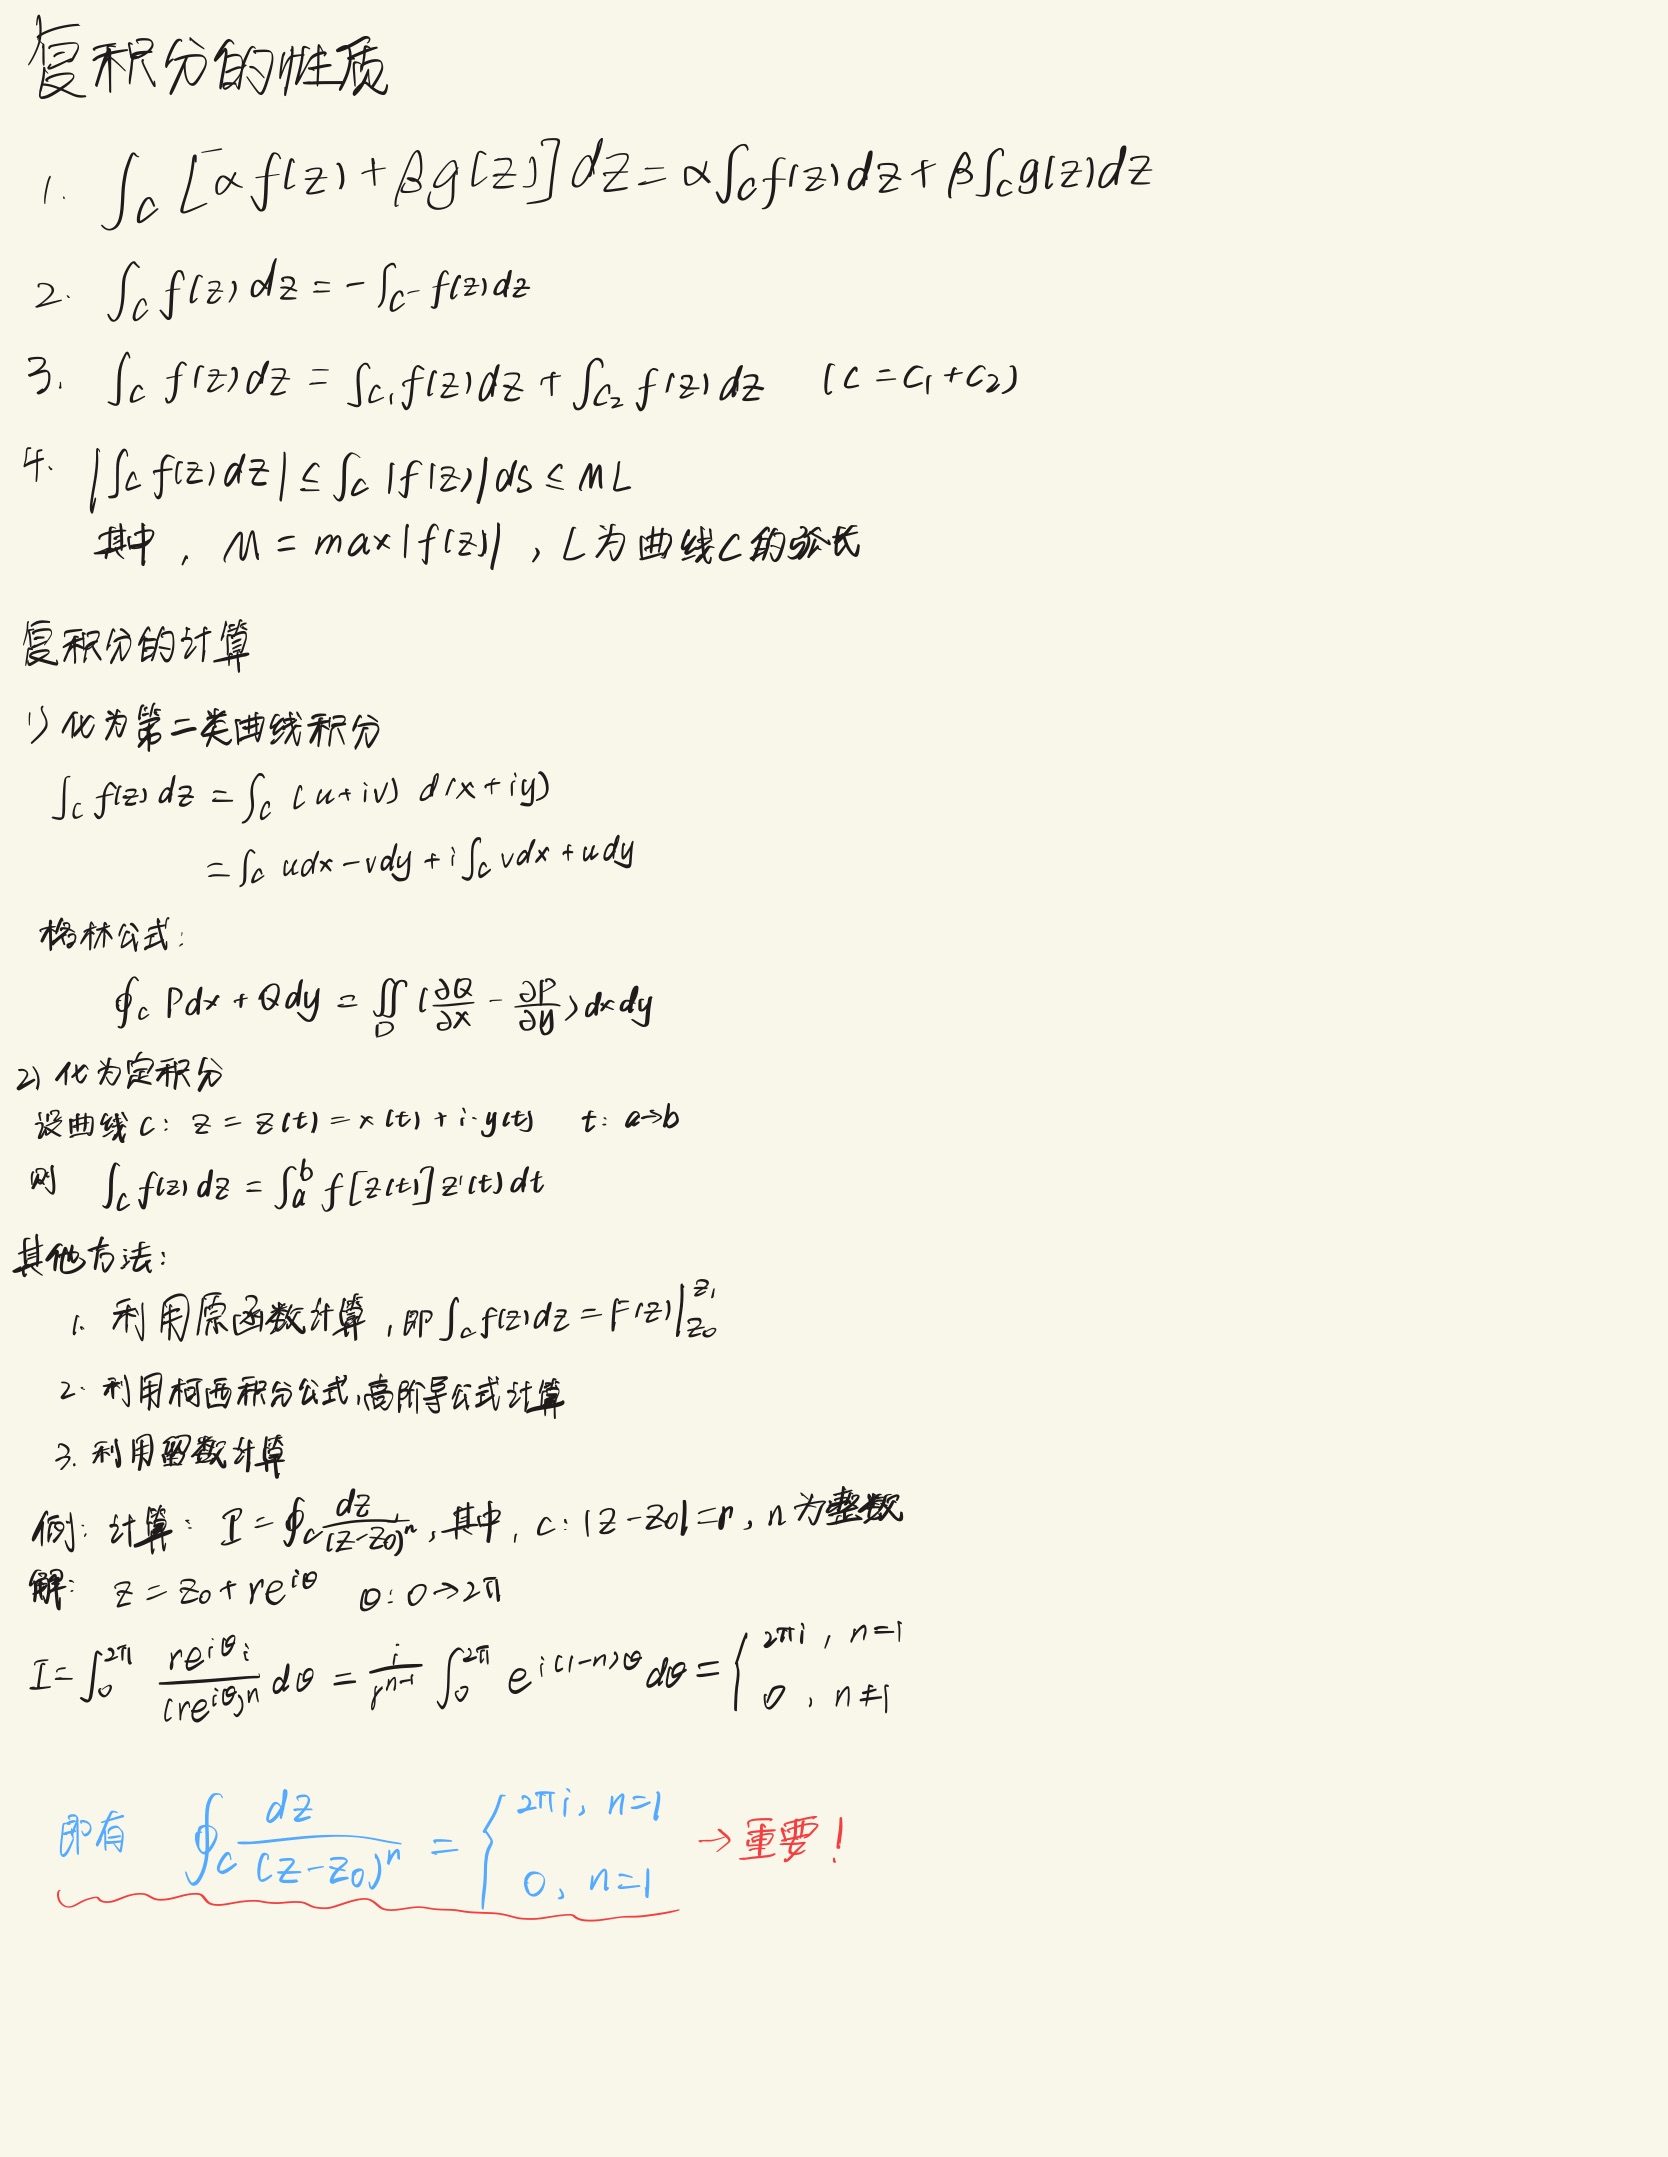 复积分的性质
1. ∫_C [αf(z)+βg(z)]dz = α∫_C f(z)dz + β∫_C g(z)dz
2. ∫_C f(z)dz = -∫_{C^-} f(z)dz
3. ∫_C f(z)dz = ∫_{C_1} f(z)dz + ∫_{C_2} f(z)dz (C = C_1 + C_2)
4. |∫_C f(z)dz| ≤ ∫_C |f(z)|ds ≤ ML
其中, M = max|f(z)|, L为曲线C的弧长
复积分的计算
1) 化为第二类曲线积分
∫_C f(z)dz = ∫_C (u+iv) d(x+iy)
= ∫_C udx - vdy + i∫_C vdx + udy
格林公式:
∮_C Pdx + Qdy = ∬_D (∂Q/∂x - ∂P/∂y)dxdy
2) 化为定积分
设曲线C: z = z(t) = x(t) + i·y(t) t: a→b
则 ∫_C f(z)dz = ∫_a^b f[z(t)]z'(t)dt
其他方法:
1. 利用原函数计算, 即∫_C f(z)dz = F(z)|_{z_0}^{z_1}
2. 利用柯西积分公式,高阶导公式计算
3. 利用留数计算
例: 计算: I = ∮_C dz/(z-z_0)^n, 其中, C: |z-z_0|=r, n为整数
解: z = z_0 + re^{iθ} θ: 0→2π
I = ∫_0^{2π} re^{iθ}i/(re^{iθ})^n dθ = i/r^{n-1} ∫_0^{2π} e^{i(1-n)θ}dθ = { 2πi, n=1
0, n≠1
即有 ∮_C dz/(z-z_0)^n = { 2πi, n=1
0, n=1
→重要!